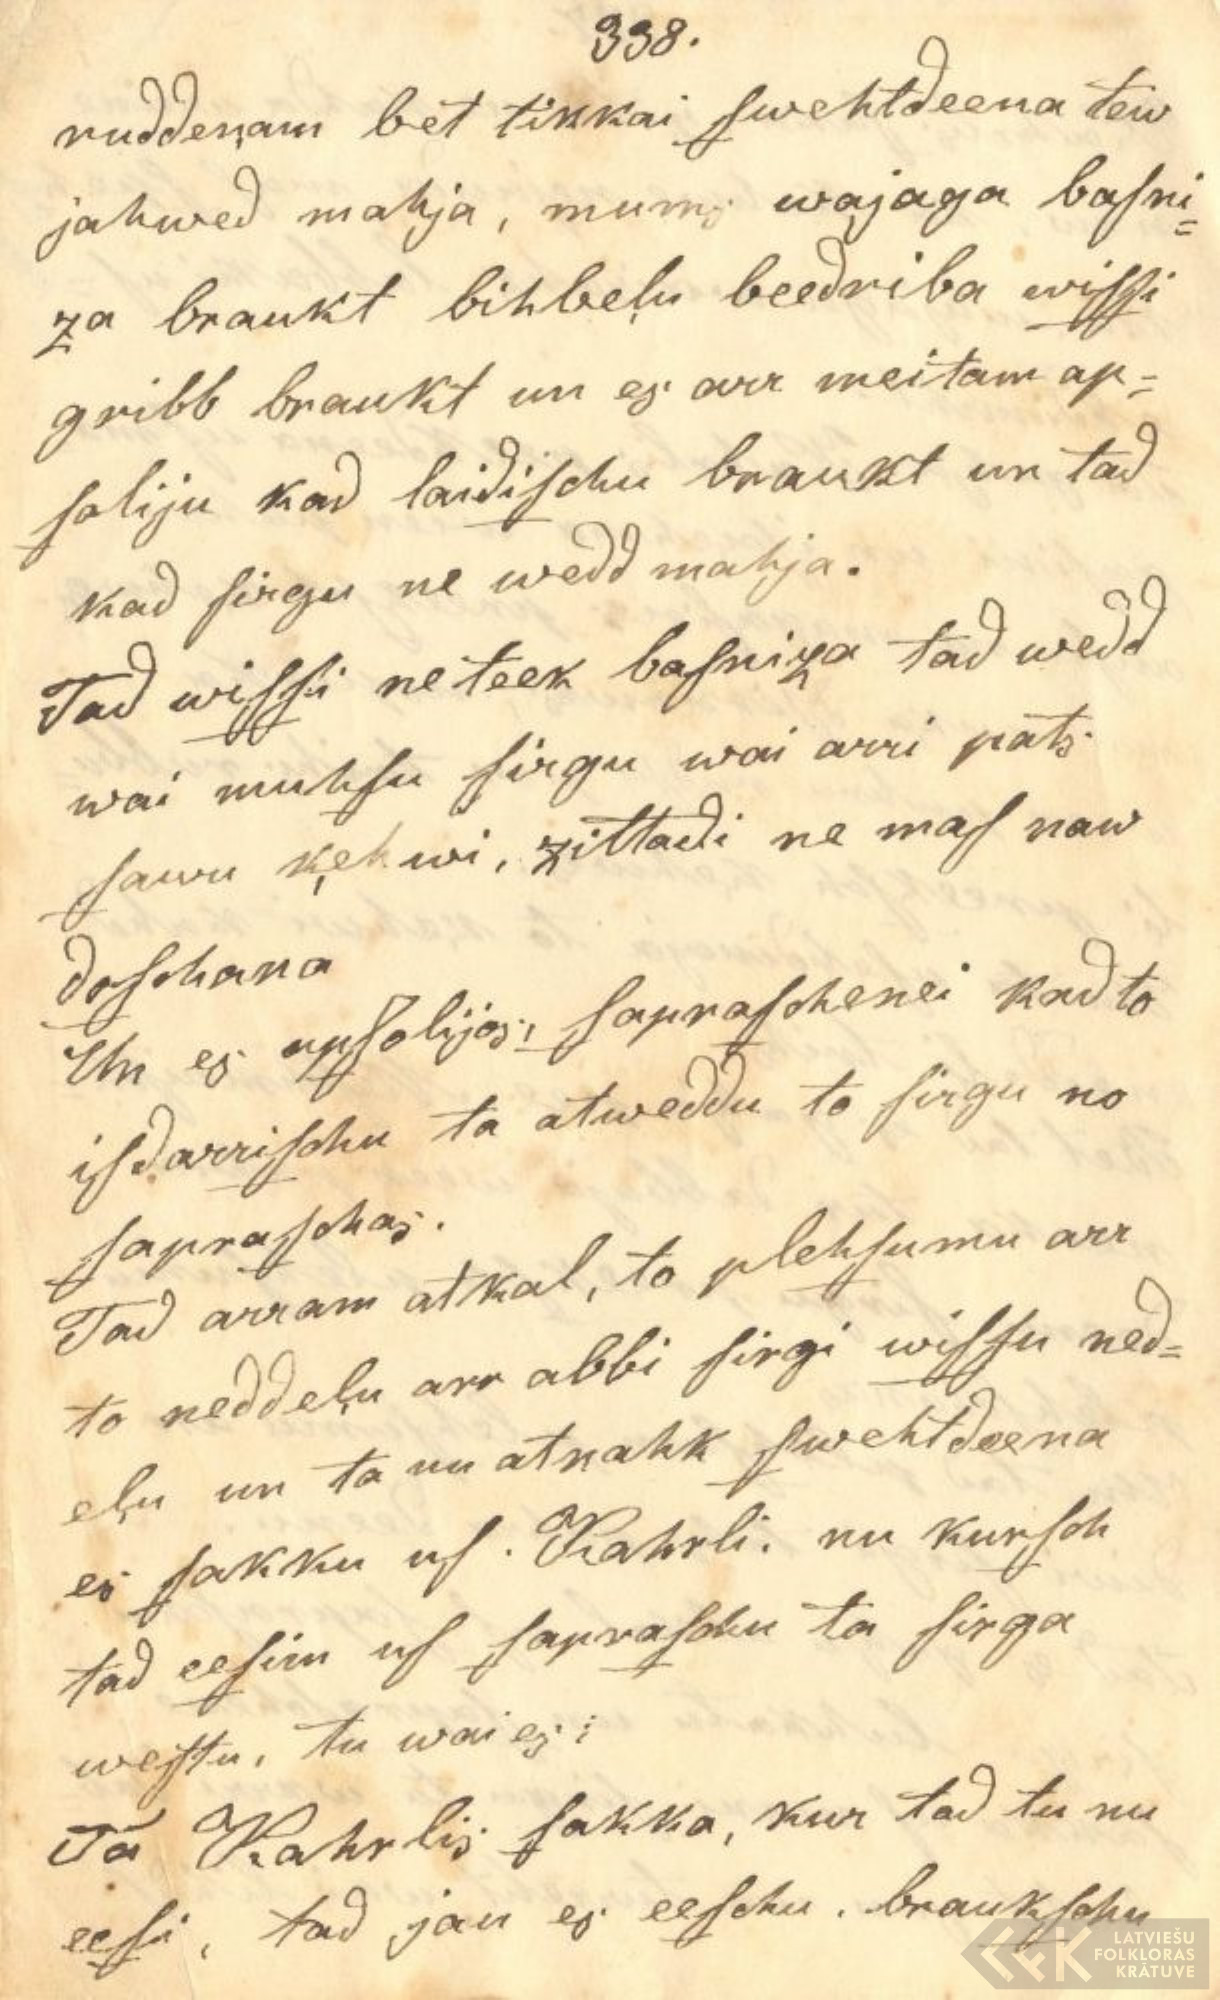 338.
ruddeņam bet tikkai ſwehtdeena tew
jahwed mahja, mums wajaga baſni=
za braukt bihbeļu beedriba wiſſi
gribb braukt un es arr meitam ap=
ſoliju kad laidiſchu braukt un tad
kad ſirgu ne wedd mahja.
Tad wiſſi neteek baſniza tad wedd
wai muhſu ſirgu wai arri pats
ſawu ķehwi, zittadi ne maſ naw
doſchana
Un es apſolijos, ſapraſchenei kad to
iſdarriſchu ta atweddu to ſirgu no
ſapraſchas.
Tad arram atkal, to plehſumu arr
to neddeļu arr abbi ſirgi wiſſu ned=
eļu un ta nu atnahk ſwehtdeena
es ſakku uſ. Kahrli. nu kurſch
tad eeſim uſ ſapraſchu ta ſirga
weſtu, tu wai es:
Tā Kahrlis ſakka, kur tad tu nu
eeſi, tad jau es eeſchu. braukſchu
LATVIEŠU
FOLKLORAS
KRĀTUVE